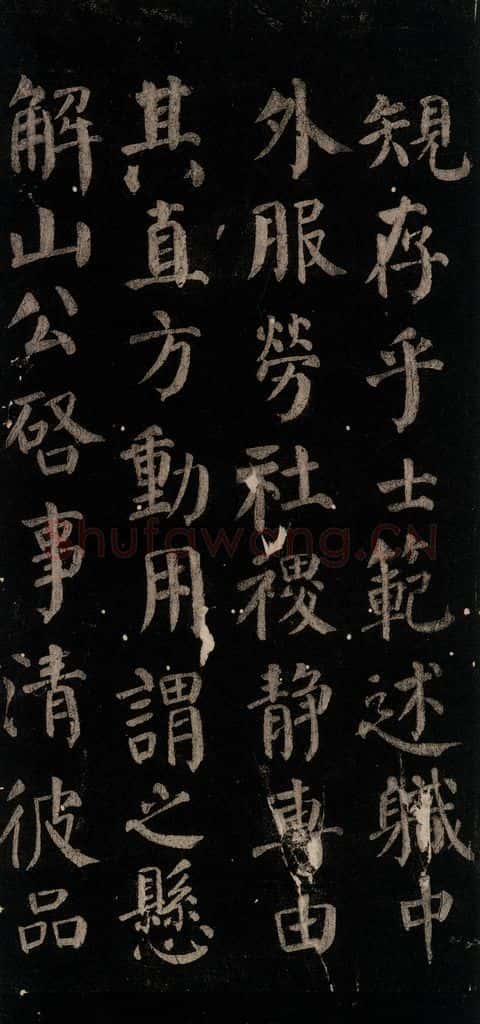 䂓存乎士範述職中
外服勞社禝静專由
其直方動用謂之懸
解山公啓事清彼品
shufawang.CN